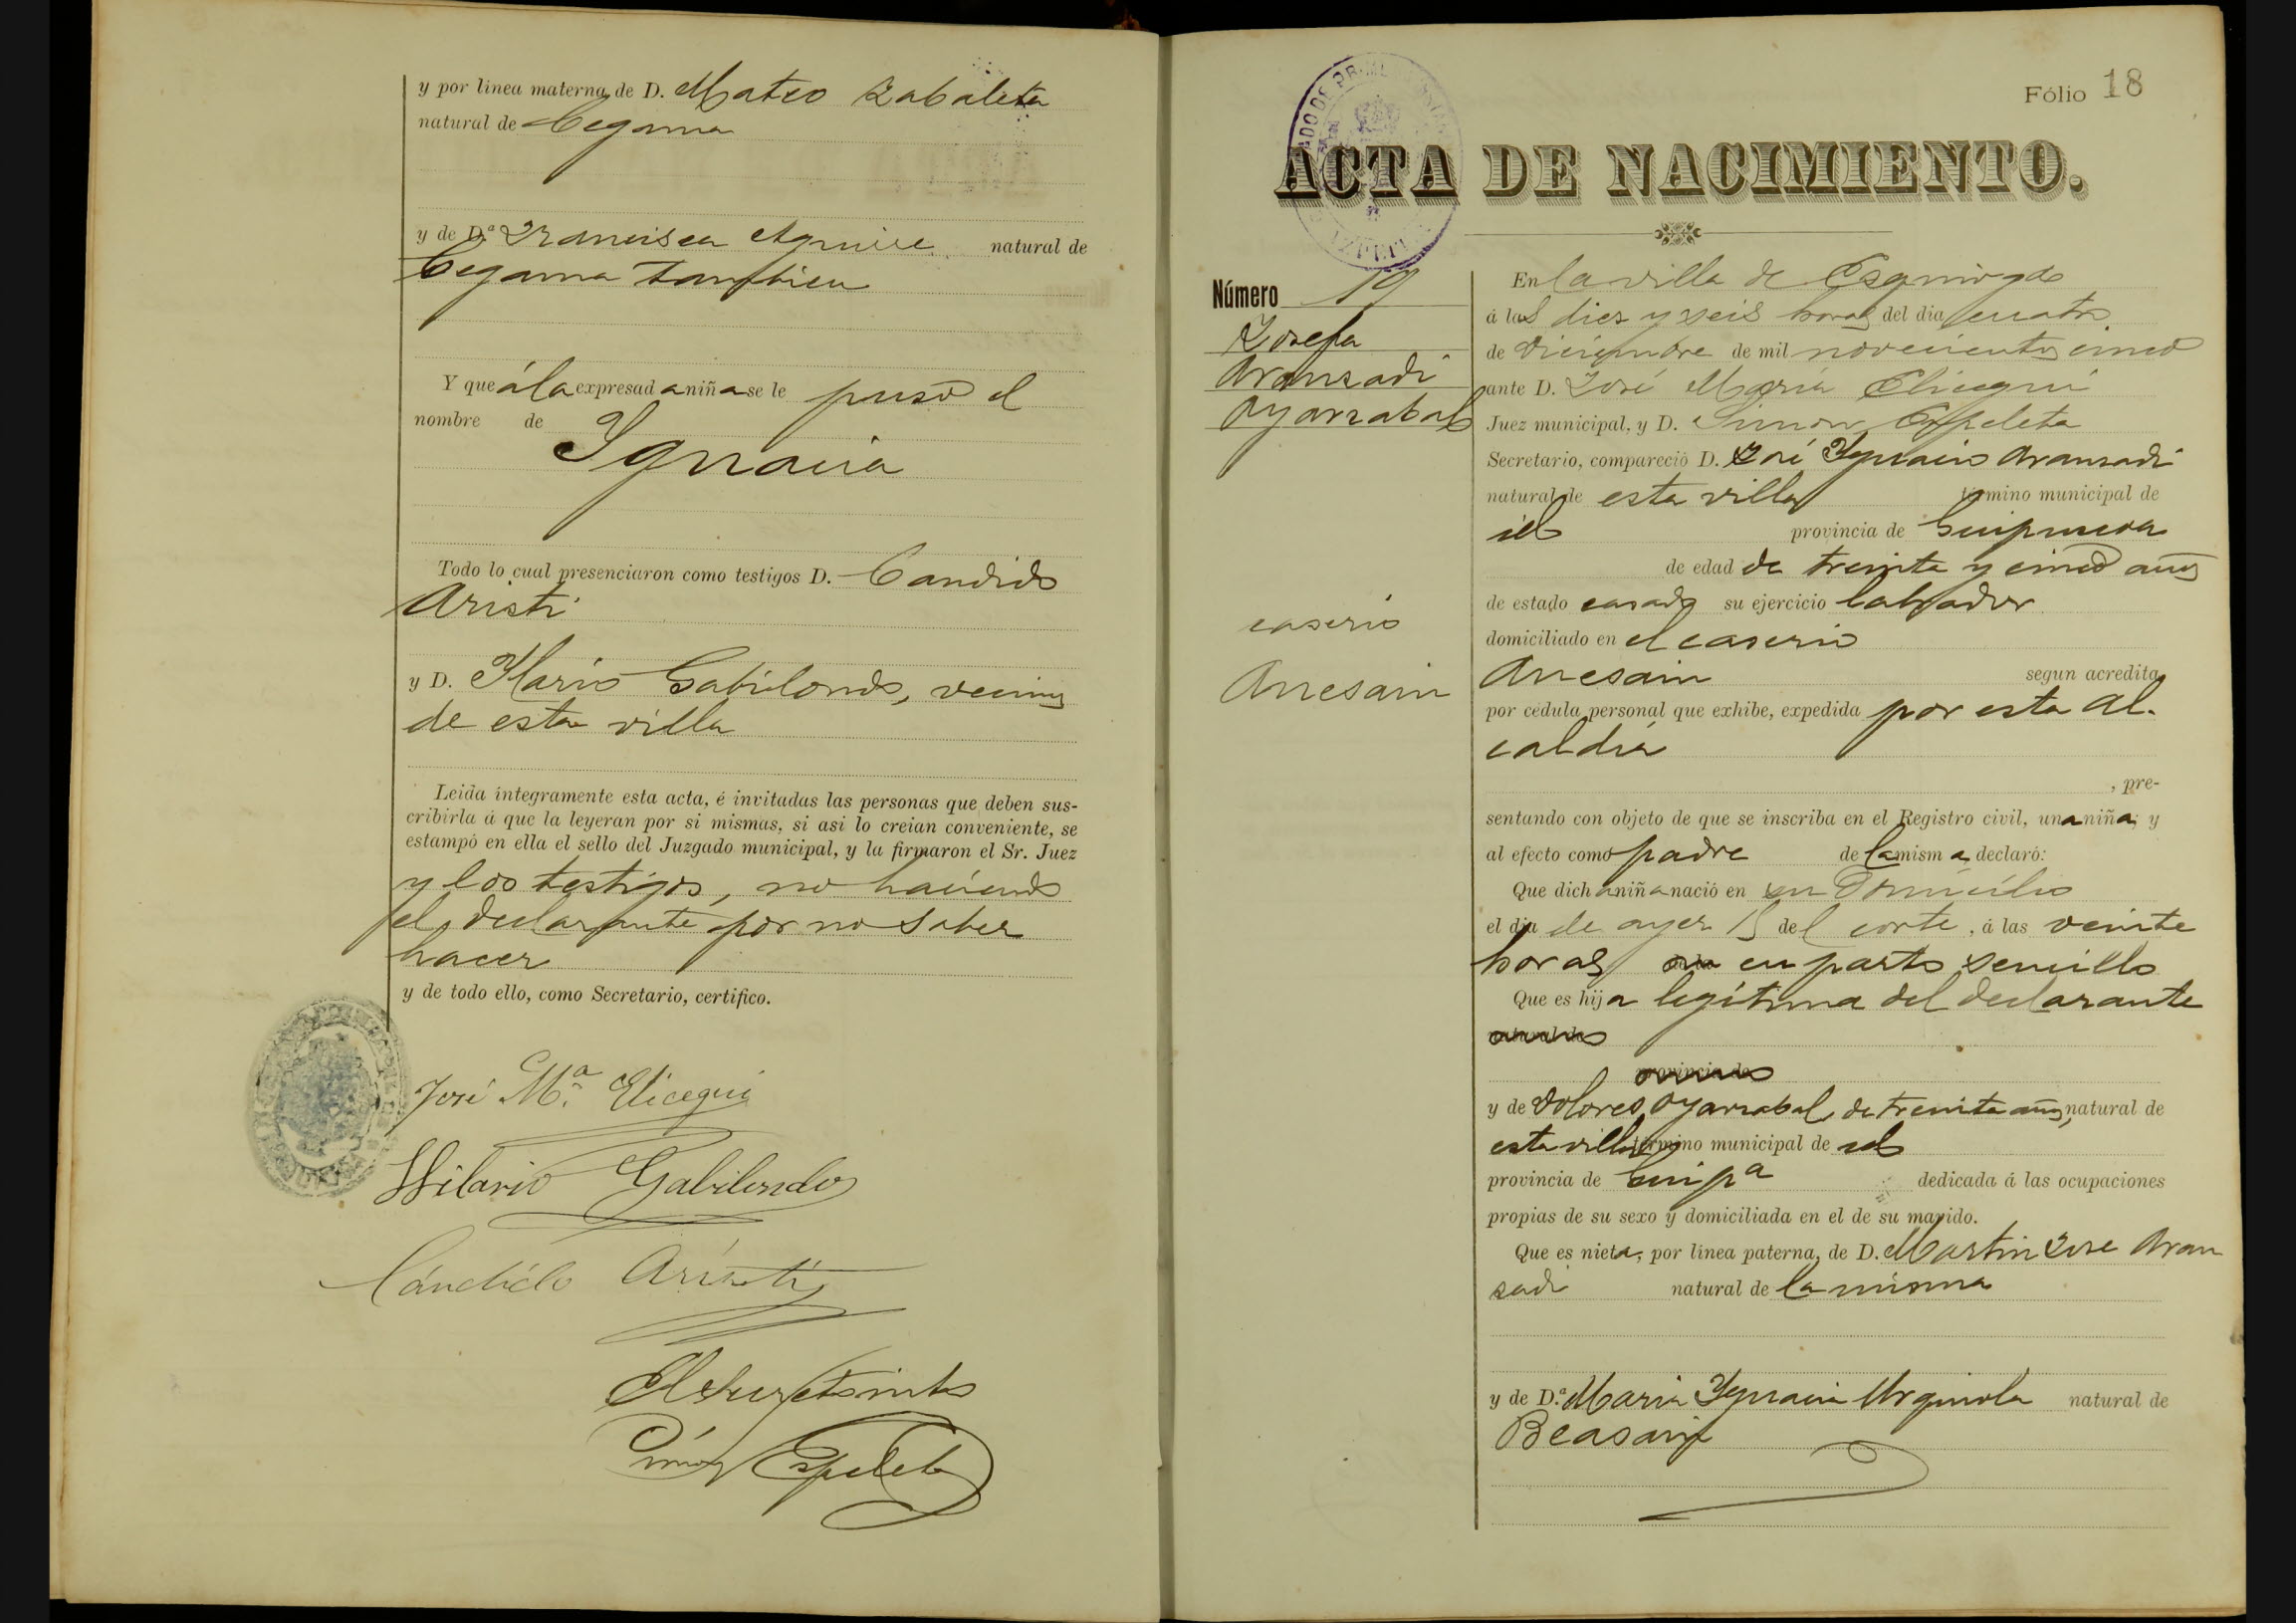 y por linea materna, de D. Mateo Zabaleta
natural de Cegama
y de D.ª Francisca Aguirre natural de
Cegama tambien
Y que á la expresada niña se le puso el
nombre de
Ygnacia
Todo lo cual presenciaron como testigos D. Candido
Aristi
y D. Ylario Gabilondo, vecinos
de esta villa
Leida íntegramente esta acta, é invitadas las personas que deben sus-
cribirla á que la leyeran por si mismas, si asi lo creian conveniente, se
estampó en ella el sello del Juzgado municipal, y la firmaron el Sr. Juez
y los testigos, no haciendo
el declarante por no saber
hacer
y de todo ello, como Secretario, certifico.
José M.ª Elicegui
Hilario Gabilondo
Cándido Aristi
Simon Espeleta
Fólio 18
ACTA DE NACIMIENTO.
Número 19
Josefa
Aranzadi
Oyarzabal
caserio
Anesain
En la villa de Esquioga
á las diez y seis horas del dia cuatro
de Diciembre de mil novecientos cinco
ante D. José María Elicegui
Juez municipal, y D. Simon Espeleta
Secretario, compareció D. José Ygnacio Aranzadi
natural de esta villa término municipal de
id provincia de Guipuzcoa
de edad de treinta y cinco años
de estado casado su ejercicio labrador
domiciliado en el caserio
Anesain segun acredita
por cédula personal que exhibe, expedida por esta Al-
caldia
, pre-
sentando con objeto de que se inscriba en el Registro civil, una niña; y
al efecto como padre de la misma, declaró:
Que dicha niña nació en su Domicilio
el dia de ayer del corte, á las veinte
horas en parto sencillo
Que es hija legítima del declarante
provincia de
y de Dolores Oyarzabal, de treinta años, natural de
esta villa término municipal de id
provincia de Guipª dedicada á las ocupaciones
propias de su sexo y domiciliada en el de su marido.
Que es nieta, por linea paterna, de D. Martin José Aran
zadi natural de la misma
y de D.ª Maria Ygnacia Urquiola natural de
Beasain